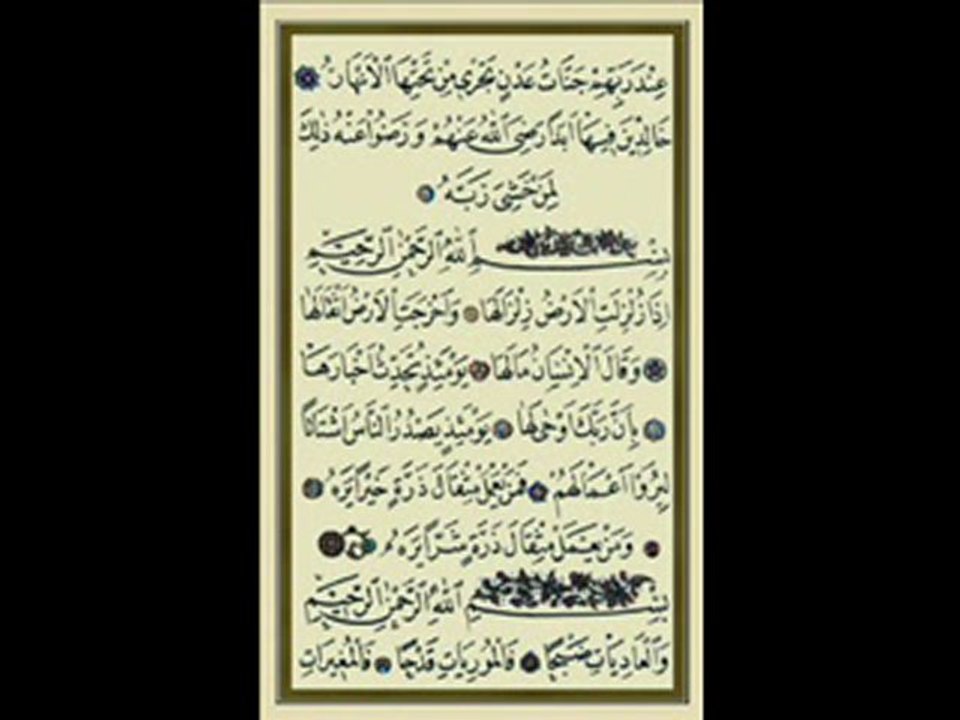 عِنْدَ رَبِّهِمْ جَنَّاتُ عَدْنٍ تَجْرِي مِنْ تَحْتِهَا الْاَنْهَارُ
خَالِدِينَ فِيهَا اَبَدًا رَضِيَ اللّٰهُ عَنْهُمْ وَرَضُوا عَنْهُ ذٰلِكَ
لِمَنْ خَشِيَ رَبَّهُ
بِسْمِ اللّٰهِ الرَّحْمٰنِ الرَّحِيمِ
اِذَا زُلْزِلَتِ الْاَرْضُ زِلْزَالَهَا وَاَخْرَجَتِ الْاَرْضُ اَثْقَالَهَا
وَقَالَ الْاِنْسَانُ مَالَهَا يَوْمَئِذٍ تُحَدِّثُ اَخْبَارَهَا
بِاَنَّ رَبَّكَ اَوْحٰى لَهَا يَوْمَئِذٍ يَصْدُرُ النَّاسُ اَشْتَاتًا
لِيُرَوْا اَعْمَالَهُمْ فَمَنْ يَعْمَلْ مِثْقَالَ ذَرَّةٍ خَيْرًا يَرَهُ
وَمَنْ يَعْمَلْ مِثْقَالَ ذَرَّةٍ شَرًّا يَرَهُ
بِسْمِ اللّٰهِ الرَّحْمٰنِ الرَّحِيمِ
وَالْعَادِيَاتِ ضَبْحًا فَالْمُورِيَاتِ قَدْحًا فَالْمُغِيرَاتِ